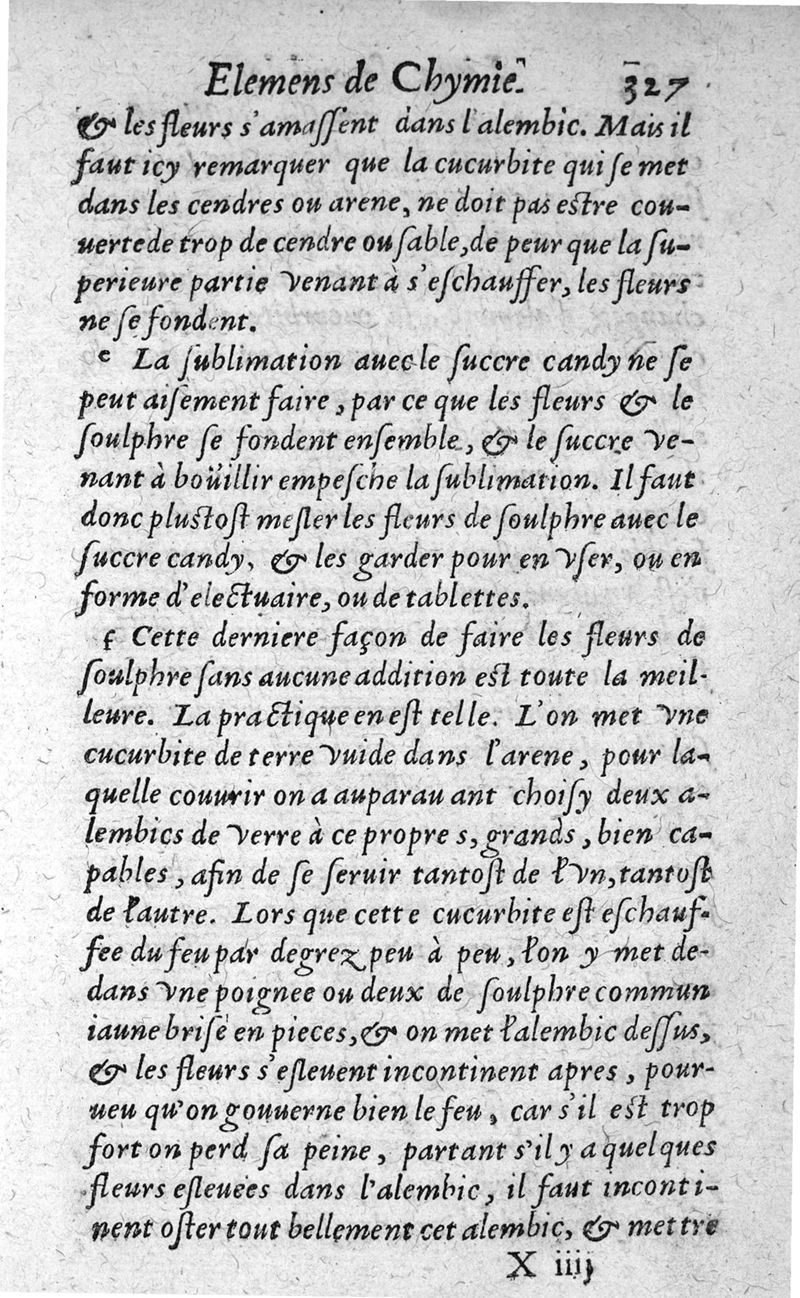 Elemens de Chymie. 327
& les fleurs s'amaſſent dans l'alembic. Mais il
faut icy remarquer que la cucurbite qui ſe met
dans les cendres ou arene, ne doit pas eſtre cou-
uerte de trop de cendre ou ſable, de peur que la ſu-
perieure partie venant à s'eſchauffer, les fleurs
ne ſe fondent.
e La ſublimation auec le ſuccre candy ne ſe
peut aiſement faire, par ce que les fleurs & le
ſoulphre ſe fondent enſemble, & le ſuccre ve-
nant à boüillir empeſche la ſublimation. Il faut
donc pluſtoſt meſler les fleurs de ſoulphre auec le
ſuccre candy, & les garder pour en vſer, ou en
forme d'electuaire, ou de tablettes.
f Cette derniere façon de faire les fleurs de
ſoulphre ſans aucune addition eſt toute la meil-
leure. La practique en eſt telle. L'on met vne
cucurbite de terre vuide dans l'arene, pour la-
quelle couurir on a auparauant choiſy deux a-
lembics de verre à ce propres, grands, bien ca-
pables, afin de ſe ſeruir tantoſt de l'vn, tantoſt
de l'autre. Lors que cette cucurbite eſt eſchauf-
fee du feu par degrez peu à peu, l'on y met de-
dans vne poignee ou deux de ſoulphre commun
iaune briſé en pieces, & on met l'alembic deſſus,
& les fleurs s'eſleuent incontinent apres, pour-
ueu qu'on gouuerne bien le feu, car s'il eſt trop
fort on perd ſa peine, partant s'il y a quelques
fleurs eſleuées dans l'alembic, il faut inconti-
nent oſter tout bellement cet alembic, & mettre
X iiij